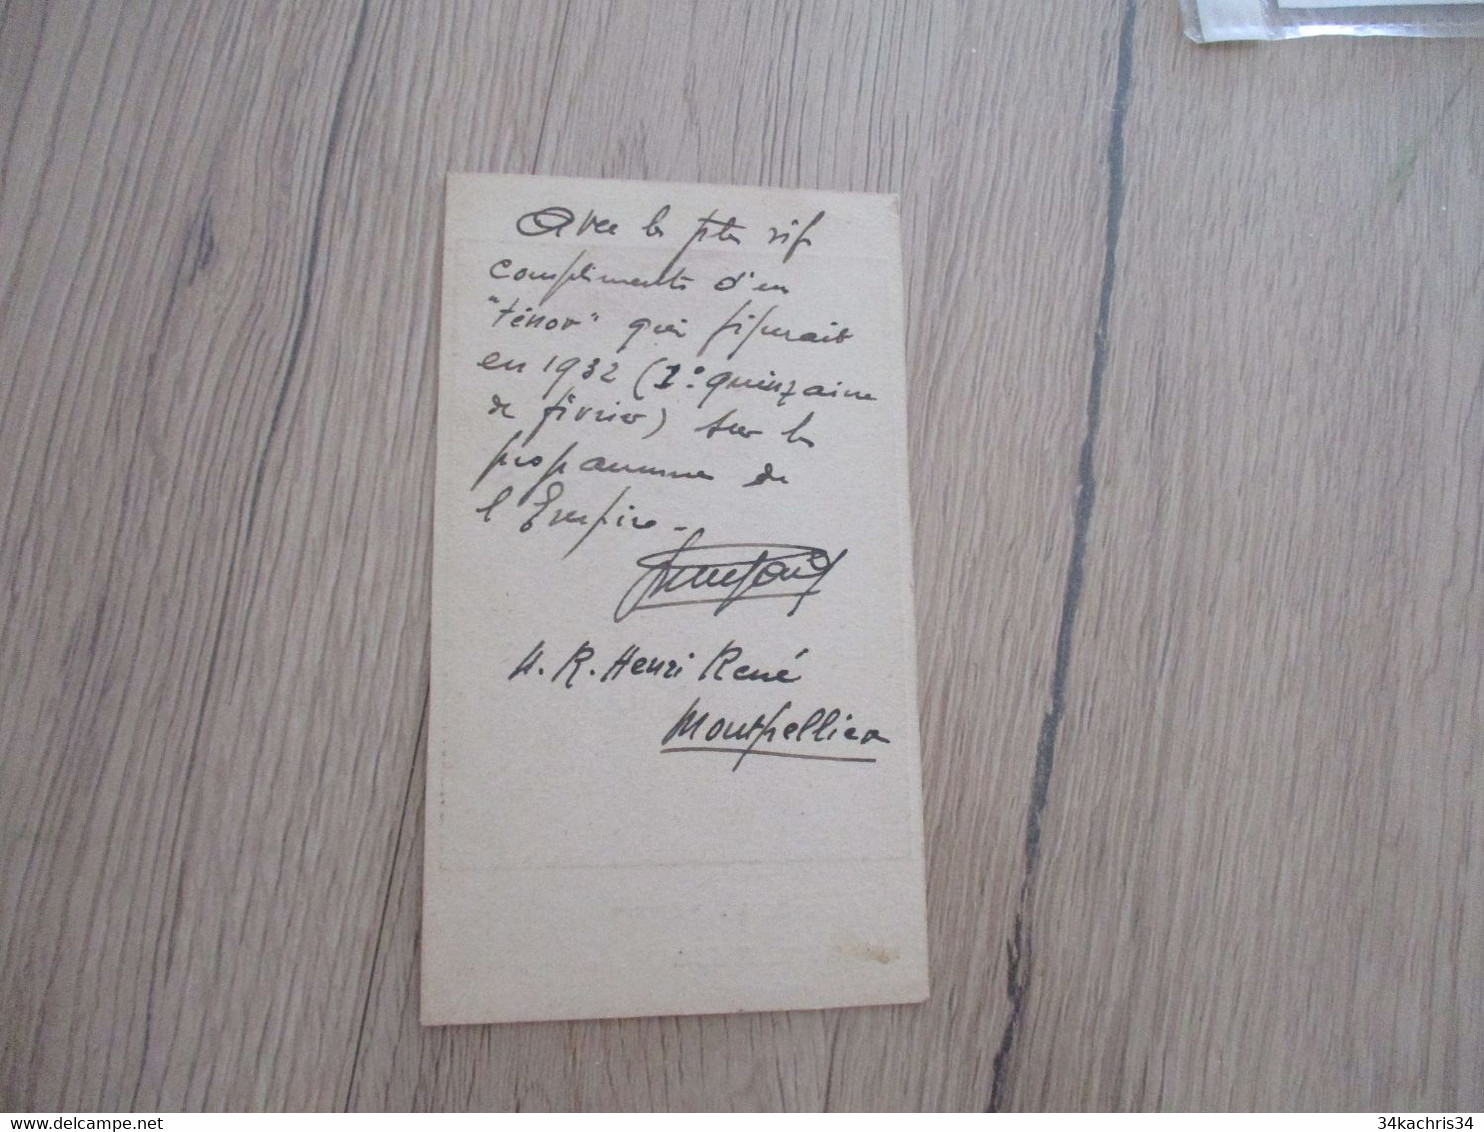 Avec les plus vifs
compliments d'un
"ténor" qui figurait
en 1932 (1º quinzaine
de février) sur le
programme de
l'Empire -
H. R. Henri René
Montpellier
34kachris34
delcampe.net